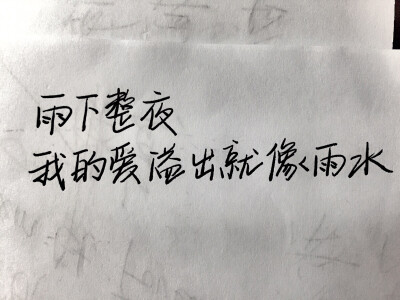 雨下整夜
我的爱溢出就像雨水